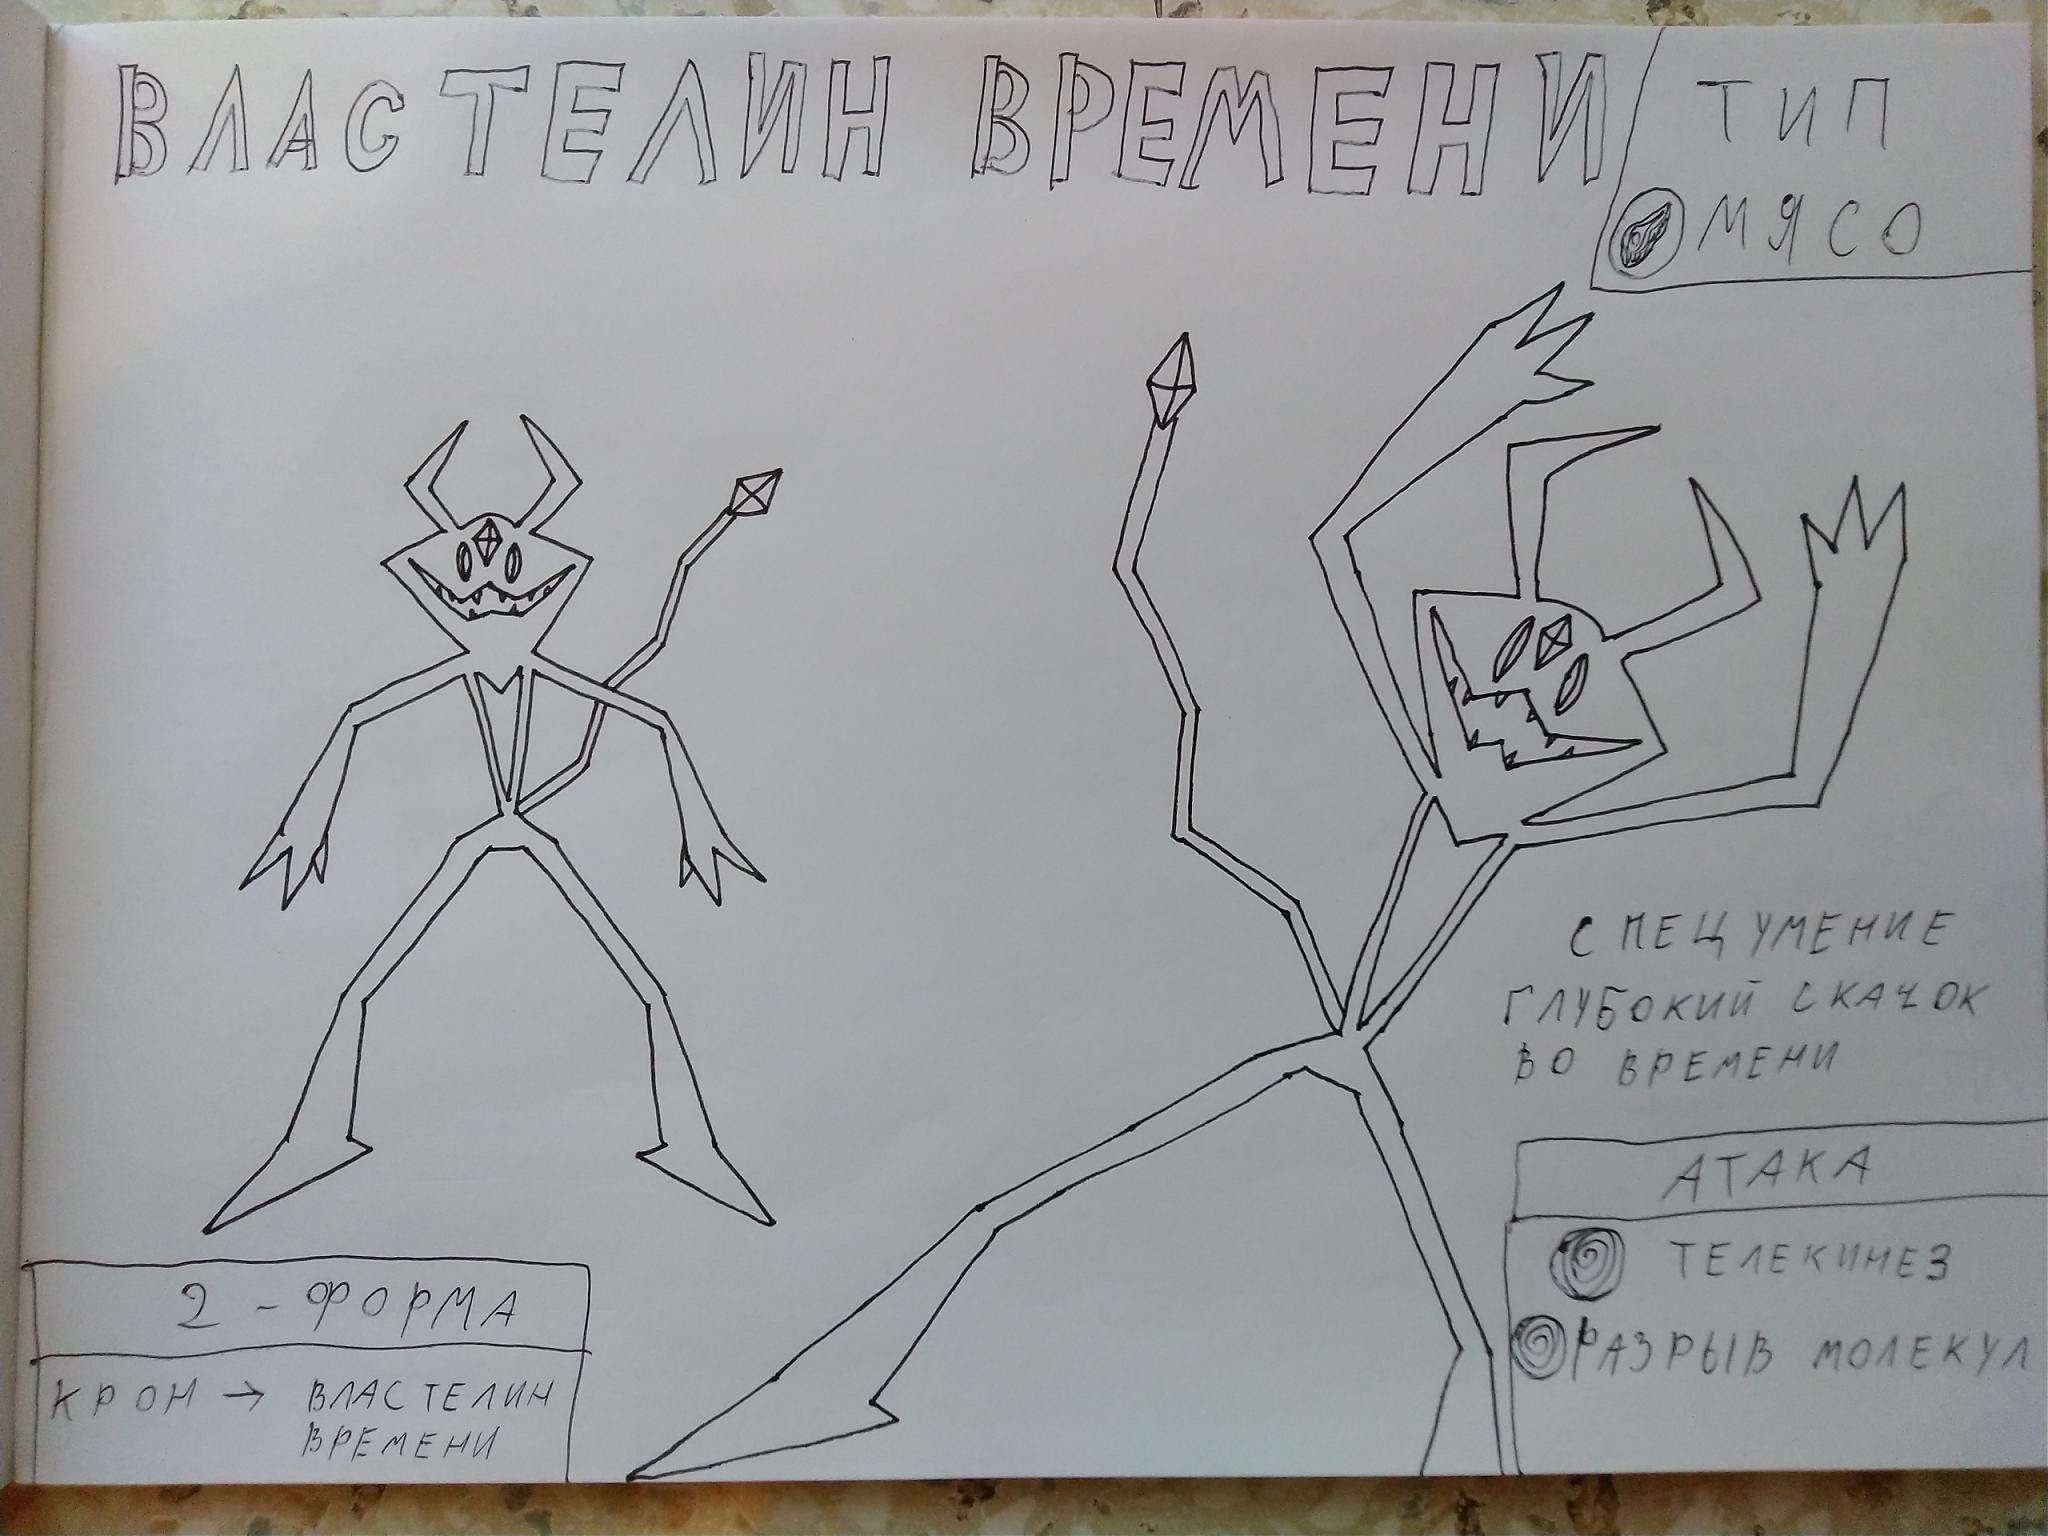 ВЛАСТЕЛИН ВРЕМЕНИ
ТИП
МЯСО
СПЕЦ УМЕНИЕ
ГЛУБОКИЙ СКАЧОК
ВО ВРЕМЕНИ
АТАКА
ТЕЛЕКИНЕЗ
РАЗРЫВ МОЛЕКУЛ
2 - ФОРМА
КРОН → ВЛАСТЕЛИН
ВРЕМЕНИ